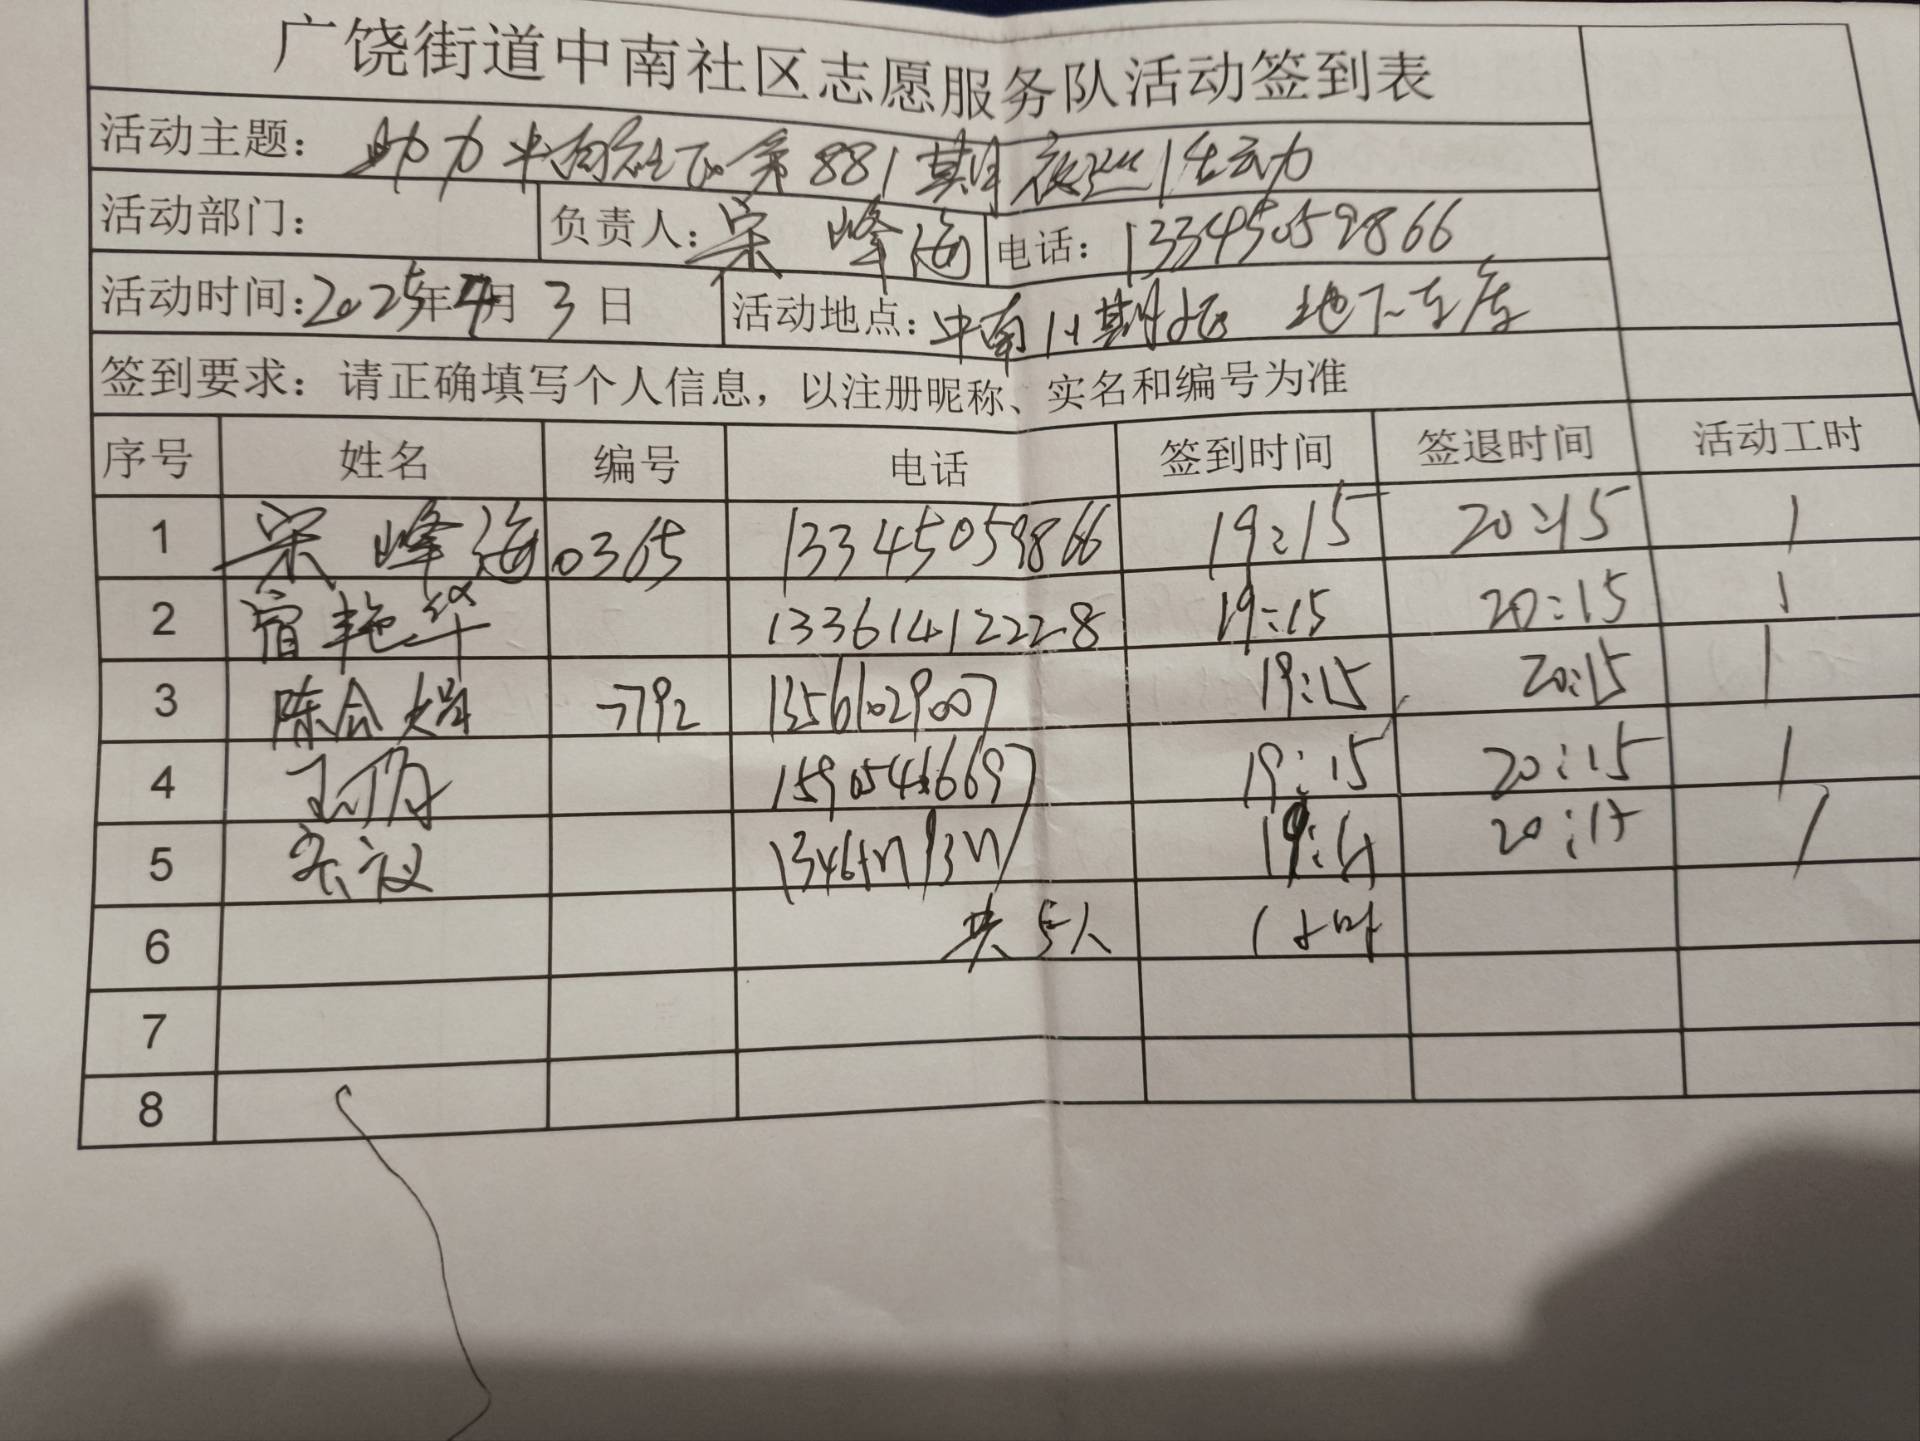 广饶街道中南社区志愿服务队活动签到表
活动主题：助力中南社区第881期夜巡活动
活动部门： 负责人：宋峰海 电话：13345059866
活动时间：2025年4月3日 活动地点：中南 期 地下车库
签到要求：请正确填写个人信息，以注册昵称、实名和编号为准
序号 姓名 编号 电话 签到时间 签退时间 活动工时
1 宋峰海 0365 13345059866 19:15 20:15 1
2 宿艳华 13361412228 19:15 20:15 1
3 陈 7792 13561029007 19:15 20:15 1
4 王 15905466697 19:15 20:15 1
5 20:15 1
6 共5人 1小时
7
8